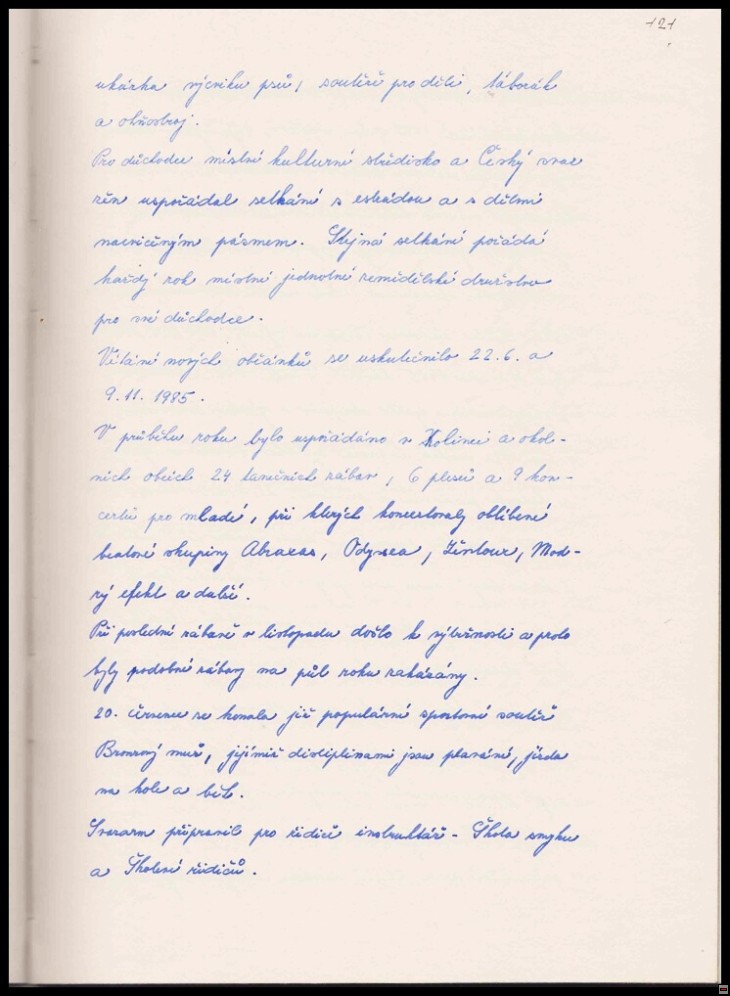 121
ukázka výcviku psů, soutěže pro děti, táborák
a ohňostroj.
Pro důchodce místní kulturní středisko a Český svaz
žen uspořádal setkání s estrádou a s dětmi
nacvičeným pásmem. Stejná setkání pořádá
každý rok místní jednotné zemědělské družstvo
pro své důchodce.
Vítání nových občánků se uskutečnilo 22.6. a
9.11. 1985.
V průběhu roku bylo uspořádáno v Kolinci a okol-
ních obcích 24 tanečních zábav, 6 plesů a 9 kon-
certů pro mladé, při kterých koncertovaly oblíbené
beatové skupiny Abraxas, Odysea, Žentour, Mod-
rý efekt a další.
Při poslední zábavě v listopadu došlo k výtržnosti a proto
byly podobné zábavy na půl roku zakázány.
20. července se konala již populární sportovní soutěž
Bronzový muž, jejímiž disciplinami jsou plavání, jízda
na kole a běh.
Svazarm připravil pro řidiče instruktáž - Škola smyku
a Školení řidičů.